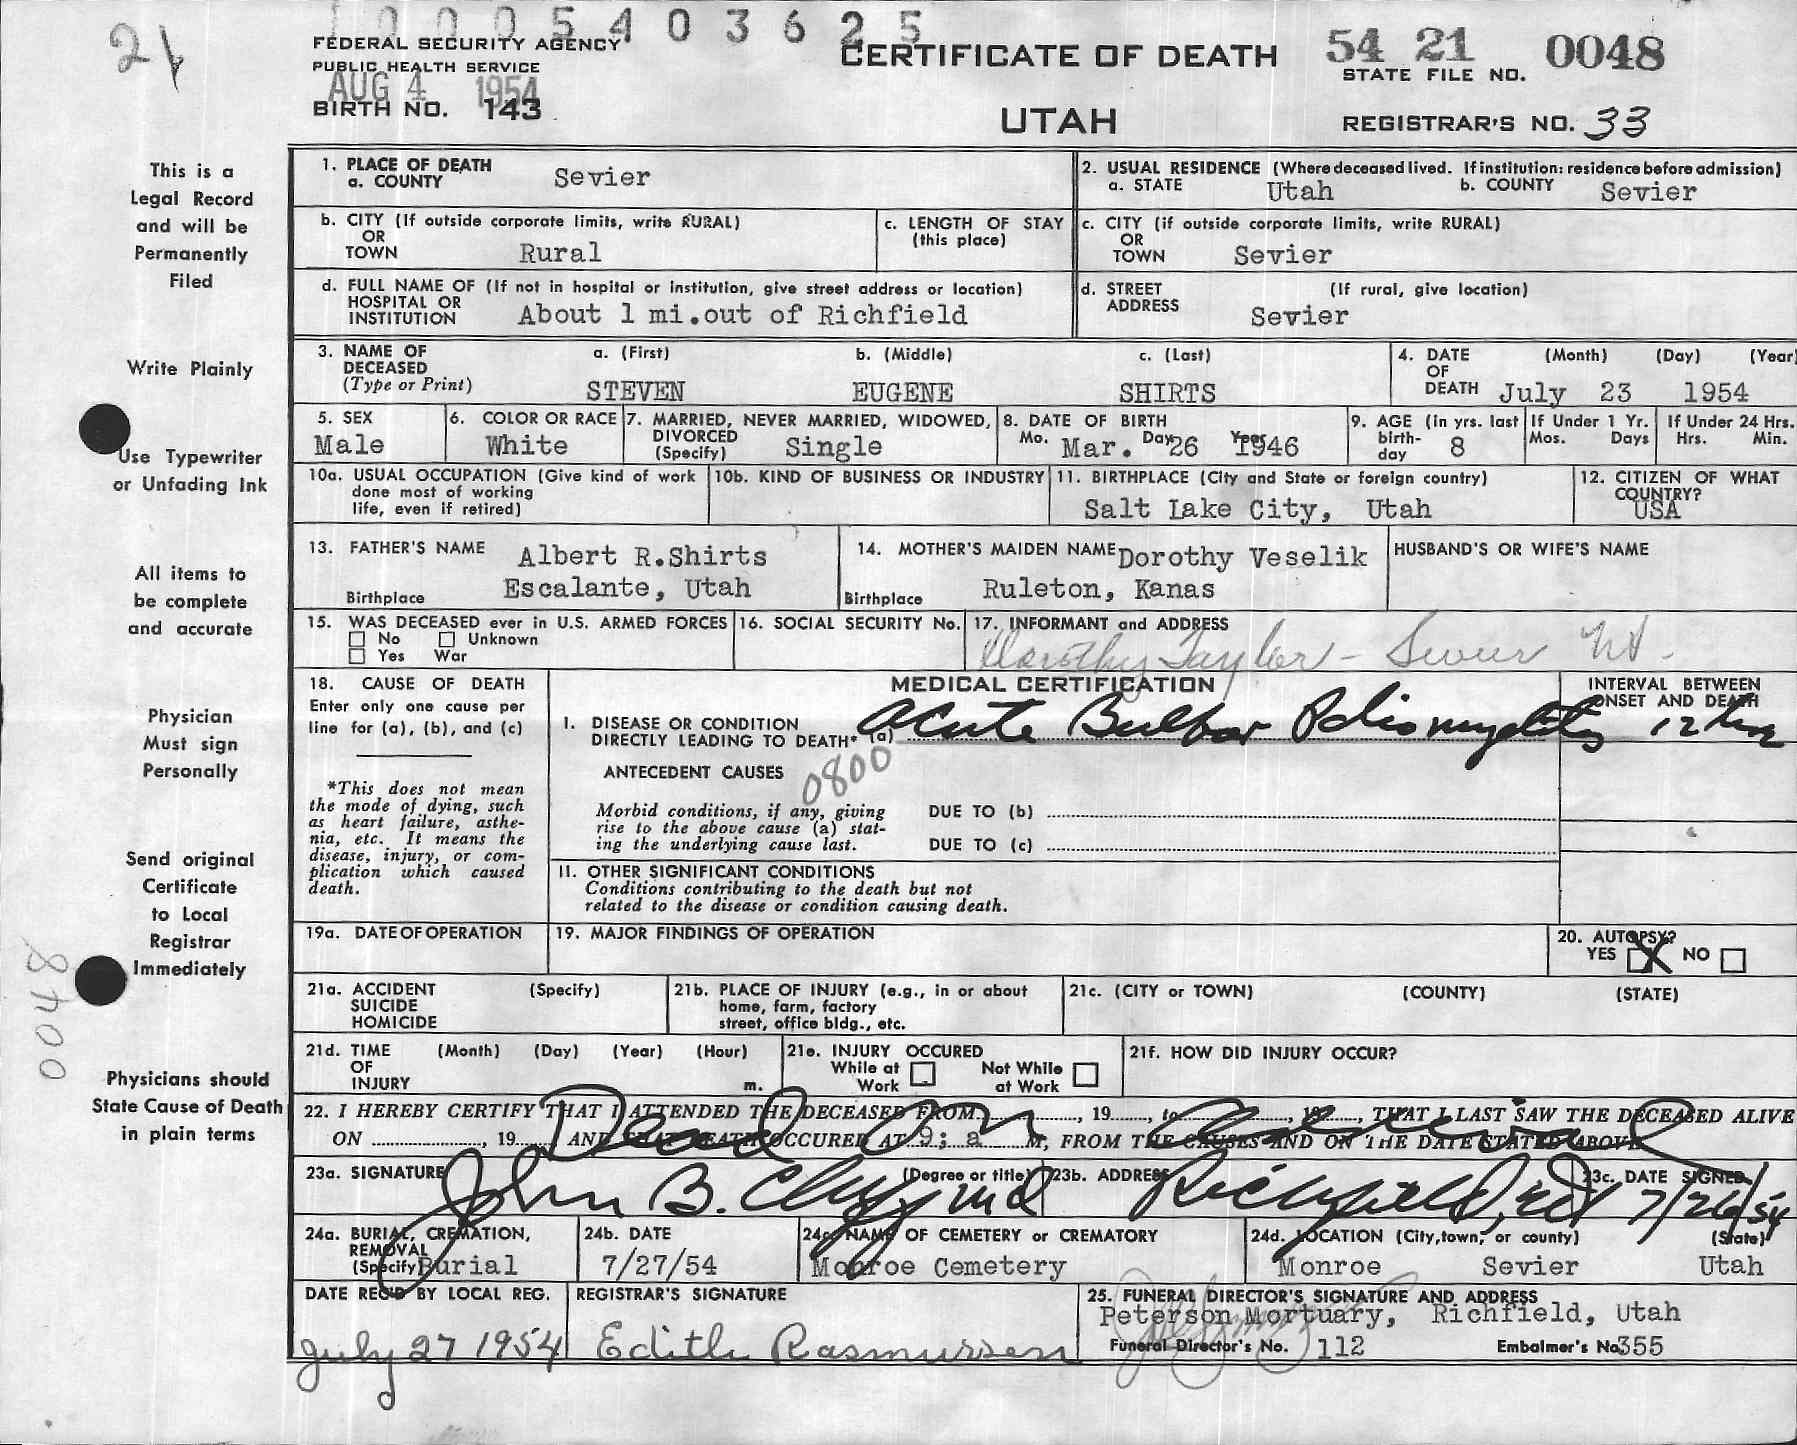 21
10005403625
FEDERAL SECURITY AGENCY
PUBLIC HEALTH SERVICE
AUG 4 1954
BIRTH NO. 143
CERTIFICATE OF DEATH
UTAH
54 21 0048
STATE FILE NO.
REGISTRAR'S NO. 33
This is a
Legal Record
and will be
Permanently
Filed
Write Plainly
Use Typewriter
or Unfading Ink
All items to
be complete
and accurate
Physician
Must sign
Personally
Send original
Certificate
to Local
Registrar
Immediately
0048
Physicians should
State Cause of Death
in plain terms
1. PLACE OF DEATH
a. COUNTY Sevier
2. USUAL RESIDENCE (Where deceased lived. If institution: residence before admission)
a. STATE Utah b. COUNTY Sevier
b. CITY (If outside corporate limits, write RURAL)
OR
TOWN Rural
c. LENGTH OF STAY
(this place)
c. CITY (if outside corporate limits, write RURAL)
OR
TOWN Sevier
d. FULL NAME OF (If not in hospital or institution, give street address or location)
HOSPITAL OR
INSTITUTION About 1 mi.out of Richfield
d. STREET (If rural, give location)
ADDRESS Sevier
3. NAME OF a. (First) b. (Middle) c. (Last)
DECEASED
(Type or Print) STEVEN EUGENE SHIRTS
4. DATE (Month) (Day) (Year)
OF
DEATH July 23 1954
5. SEX
Male
6. COLOR OR RACE
White
7. MARRIED, NEVER MARRIED, WIDOWED,
DIVORCED
(Specify) Single
8. DATE OF BIRTH
Mo. Mar. Day 26 Year 1946
9. AGE (In yrs. last
birth-
day 8
If Under 1 Yr.
Mos. Days
If Under 24 Hrs.
Hrs. Min.
10a. USUAL OCCUPATION (Give kind of work
done most of working
life, even if retired)
10b. KIND OF BUSINESS OR INDUSTRY
11. BIRTHPLACE (City and State or foreign country)
Salt Lake City, Utah
12. CITIZEN OF WHAT
COUNTRY?
USA
13. FATHER'S NAME Albert R.Shirts
Birthplace Escalante, Utah
14. MOTHER'S MAIDEN NAME Dorothy Veselik
Birthplace Ruleton, Kanas
HUSBAND'S OR WIFE'S NAME
15. WAS DECEASED ever in U.S. ARMED FORCES
No Unknown
Yes War
16. SOCIAL SECURITY No.
17. INFORMANT and ADDRESS
Dorothy Taylor - Sevier Ut.
18. CAUSE OF DEATH
Enter only one cause per
line for (a), (b), and (c)
*This does not mean
the mode of dying, such
as heart failure, asthe-
nia, etc. It means the
disease, injury, or com-
plication which caused
death.
MEDICAL CERTIFICATION
I. DISEASE OR CONDITION
DIRECTLY LEADING TO DEATH* (a) Acute Bulbar Poliomyelitis
INTERVAL BETWEEN
ONSET AND DEATH
12 hrs
ANTECEDENT CAUSES
0800
Morbid conditions, if any, giving
rise to the above cause (a) stat-
ing the underlying cause last.
DUE TO (b)
DUE TO (c)
II. OTHER SIGNIFICANT CONDITIONS
Conditions contributing to the death but not
related to the disease or condition causing death.
19a. DATE OF OPERATION
19. MAJOR FINDINGS OF OPERATION
20. AUTOPSY?
YES X NO
21a. ACCIDENT (Specify)
SUICIDE
HOMICIDE
21b. PLACE OF INJURY (e.g., in or about
home, farm, factory
street, office bldg., etc.
21c. (CITY or TOWN) (COUNTY) (STATE)
21d. TIME (Month) (Day) (Year) (Hour)
OF
INJURY m.
21e. INJURY OCCURED
While at Work Not While at Work
21f. HOW DID INJURY OCCUR?
22. I HEREBY CERTIFY THAT I ATTENDED THE DECEASED FROM , 19 , to , 19 , THAT I LAST SAW THE DECEASED ALIVE
ON , 19 AND THAT DEATH OCCURED AT 9: a M, FROM THE CAUSES AND ON THE DATE STATED ABOVE
Dead On arrival
23a. SIGNATURE (Degree or title)
John B. Clegg md
23b. ADDRESS
Richfield, Ut
23c. DATE SIGNED
7/26/54
24a. BURIAL, CREMATION,
REMOVAL
(Specify) Burial
24b. DATE
7/27/54
24c. NAME OF CEMETERY OR CREMATORY
Monroe Cemetery
24d. LOCATION (City, town, or county) (State)
Monroe Sevier Utah
DATE REC'D BY LOCAL REG.
July 27 1954
REGISTRAR'S SIGNATURE
Edith Rasmussen
25. FUNERAL DIRECTOR'S SIGNATURE AND ADDRESS
Peterson Mortuary, Richfield, Utah
Funeral Director's No. 112 Embalmer's No. 355